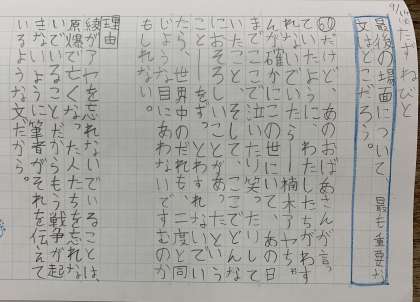 9/10 たずねびと
最後の場面について、最も重要な
文はどこだろう。
だけど、あのおばあさんが言っ
ていたように、わたしたちがわす
れないでいたら――楠木アヤちゃ
んが確かにこの世にいて、あの日
までここで泣いたり笑ったりして
いたこと、そして、ここでどんな
におそろしいことがあったかという
こと――をずっとわすれないでい
たら、世界中のだれも、二度と同
じような目にあわないですむのか
もしれない。
理由
綾がアヤを忘れないでいることは、
原爆で亡くなった人たちを忘れな
いでいることだからもう戦争が起
きないように筆者がそれを伝えて
いるような文だから。